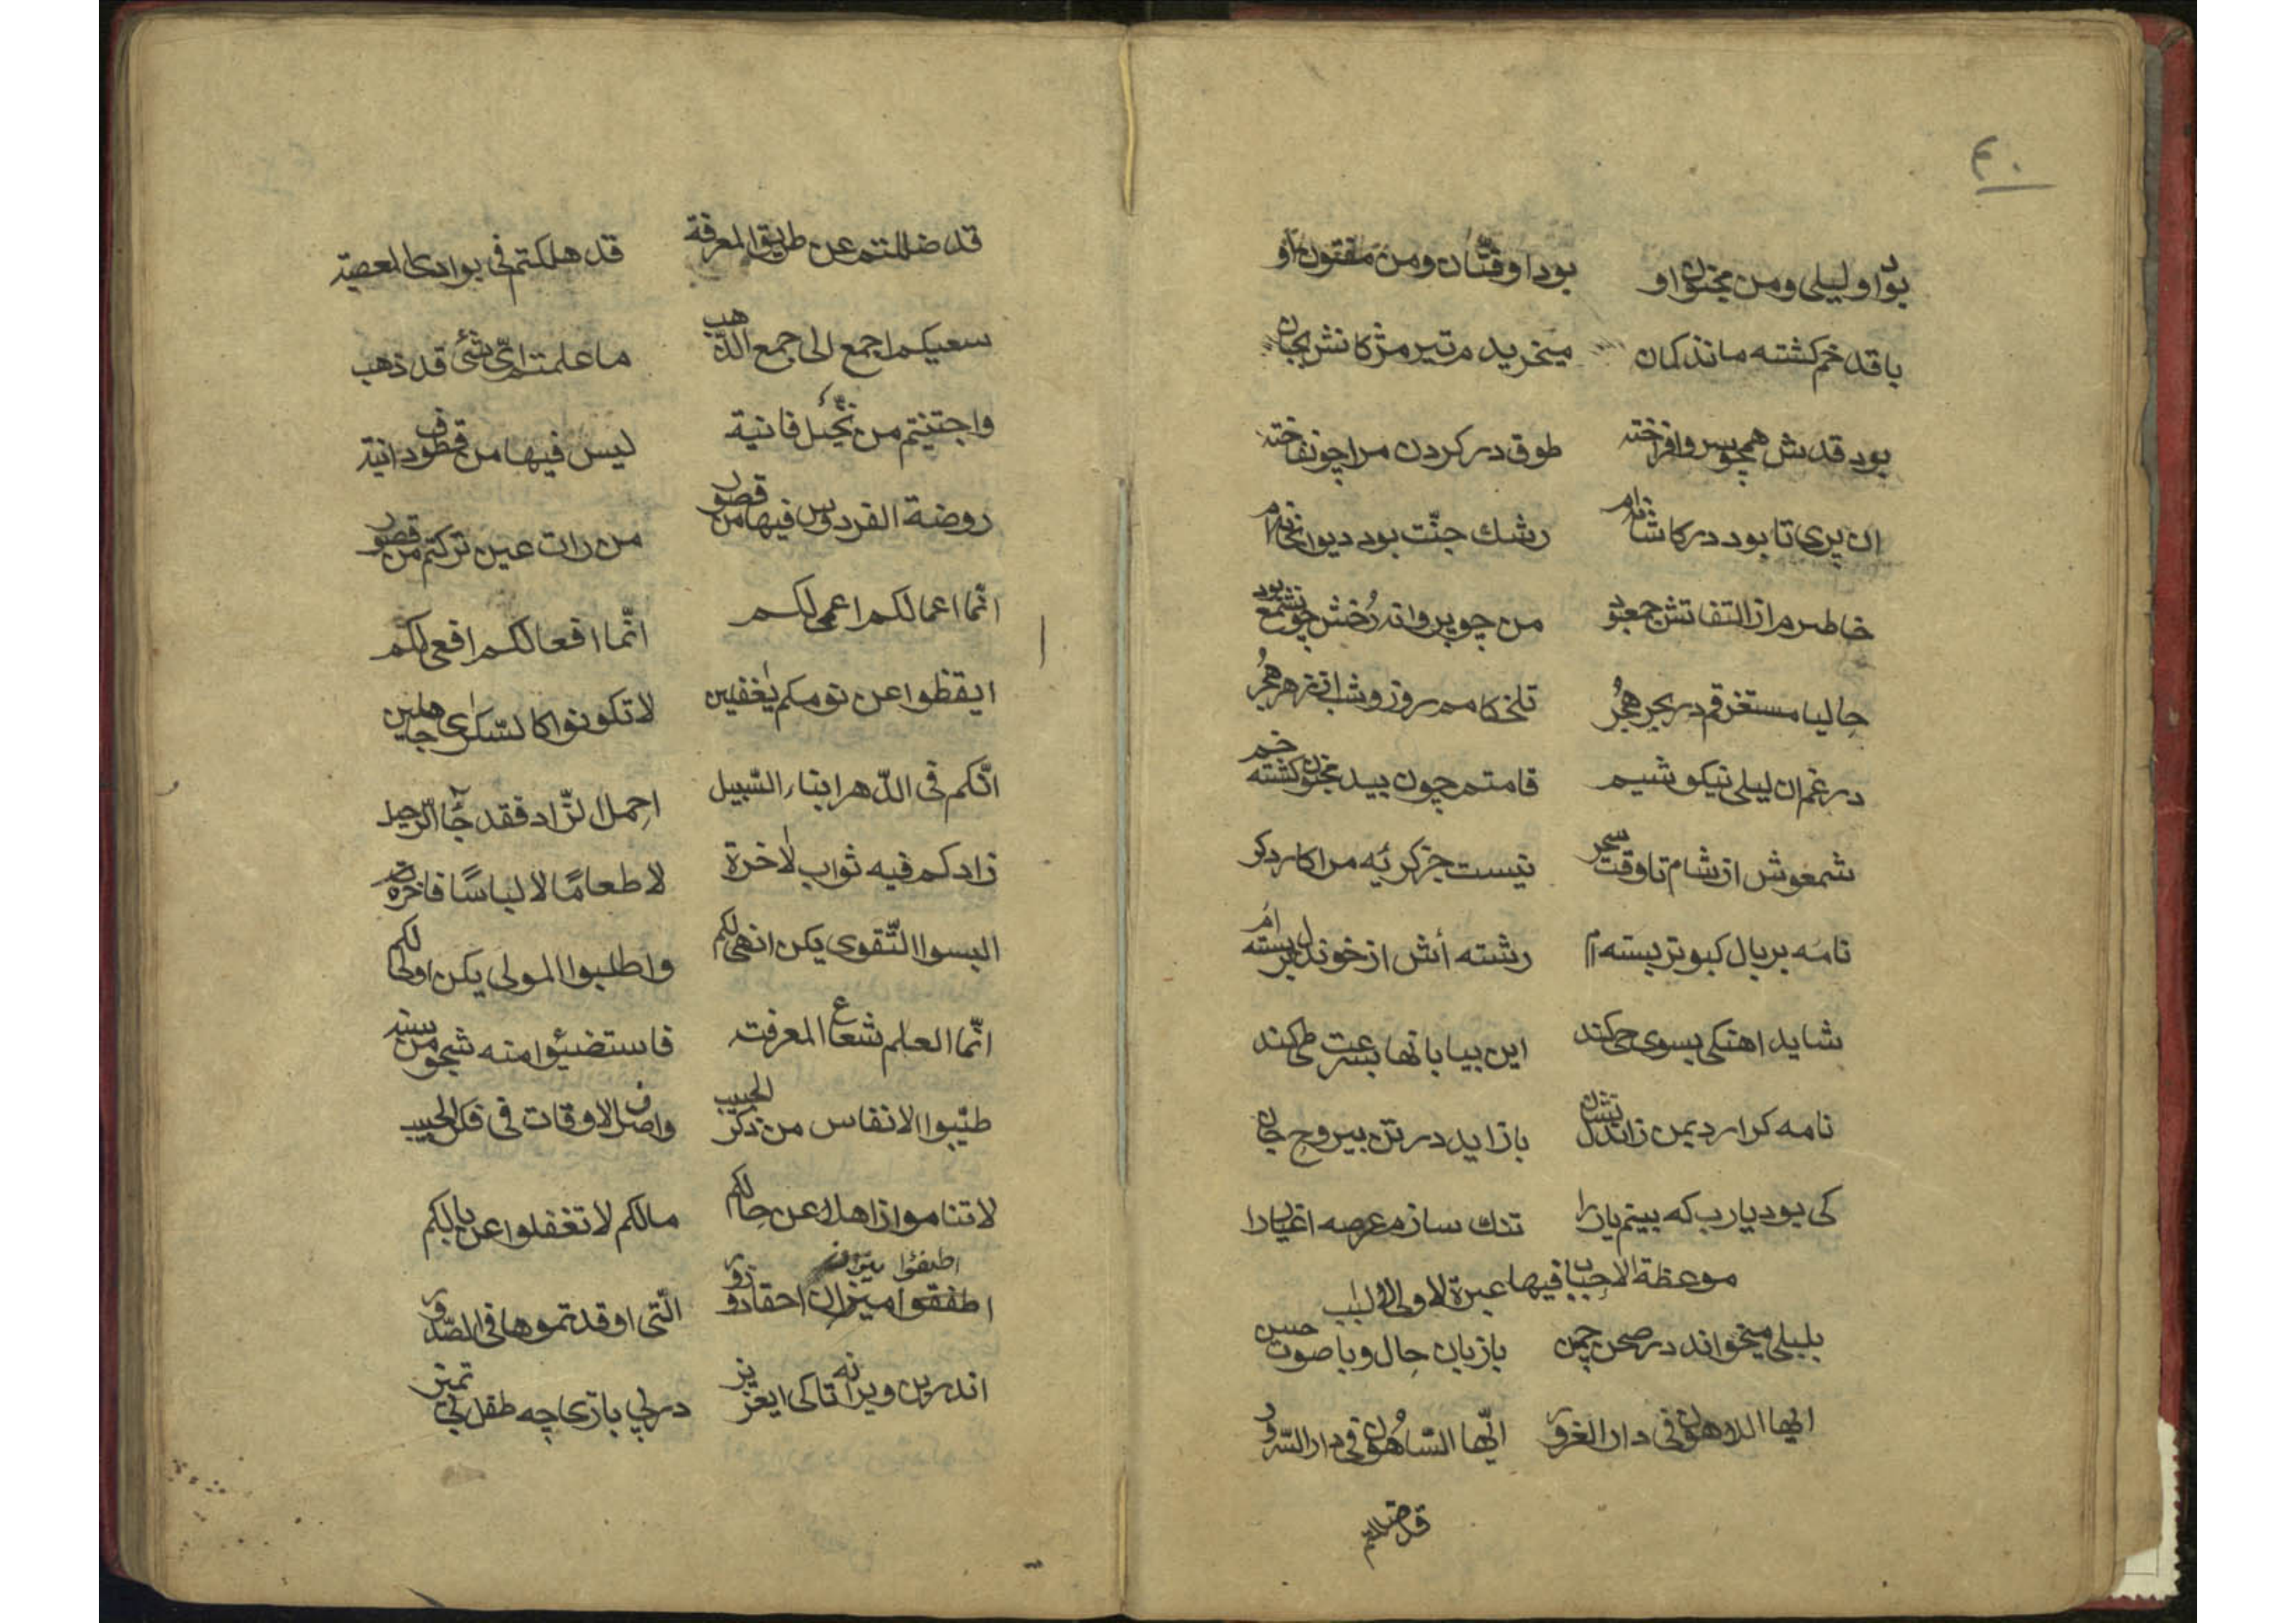 ٤٠
بود او لیلی و من مجنون او بود او فتّان و من مفتون او
با قد خم کشته مانند کمان میخریدم تیر مژکانش بجان
بود قدش همچو سرو افراخته طوق در کردن مرا چون فاخته
ان پری تا بود در کاشانه‌ام رشك جنّت بود دیوانخانه‌ام
خاطرم از التفاتش جمع بود من چو پروانه رُخش چون شمع بود
حالیا مستغرقم در بحر هجُر تلخ کامم روز و شب از زهر هجُر
در غم ان لیلی نیکو شیم قامتم چون بید مجنون کشته خم
شمعوش از شام تا وقت سحر نیست جز کریَه مرا کار دکر
نامَه بر بال کبوتر بسته‌ام رشته أش از خون دل بر بسته‌ام
شاید اهنکی بسوی حی کند این بیابانها بسرعت طی کند
نامه کر ارد بمن زان دلستان باز اید در تن بیروح جان
کی بود یارب که بینم یار را تنك سازم عرصه اغیار را
موعظة الاحباب فیها عبرة لاولی الالباب
بلبلی میخواند در صحن چمن با زبان حال و با صوت حسن
ایها اللاهون فی دار الغرور ایّها السّاهُون فی دار السّرور
قد ضللتم
قد ضللتم عن طریق المعرفة قد هلکتم فی بوادی المعصیة
سعیکم اجمع الی جمع الذّهب ما علمتم ایّ شئ قد ذهب
واجتنیتم من نخیل فانیة لیس فیها من قطوف دانیة
روضة الفردوس فیها من قصور من رات عین ترکتم من قصور
انّما اعمالکم اعمی لکم انّما افعالکم افعی لکم
ایقظوا عن نومکم یٰغفلین لا تکونوا کالسّکرٰی جاهلین
انّکم فی الدّهر ابناء السّبیل احمل الزّاد فقد جٓاء الرّحیل
زادکم فیه ثواب لاخرة لا طعامًا لا لباسًا فاخرة
البسوا التّقوی یکن انهی لکم واطلبوا المولی یکن اولی لکم
انّما العلم شعاع المعرفت فاستضیئوا منه شیئا من سنه
طیّبوا الانفاس من ذکر الحبیب واصرف الاوقات فی فکر الحبیب
لا تناموا زاهلا عن حالکم مالکم لا تغفلوا عن بالکم
اطفئوا نیران
اطفقوا میزان احقاد و زور الّتی اوقدتموها فی الصّدور
اندرین ویرانه تا کی ایعزیز در پی بازی چه طفل بی تمیز